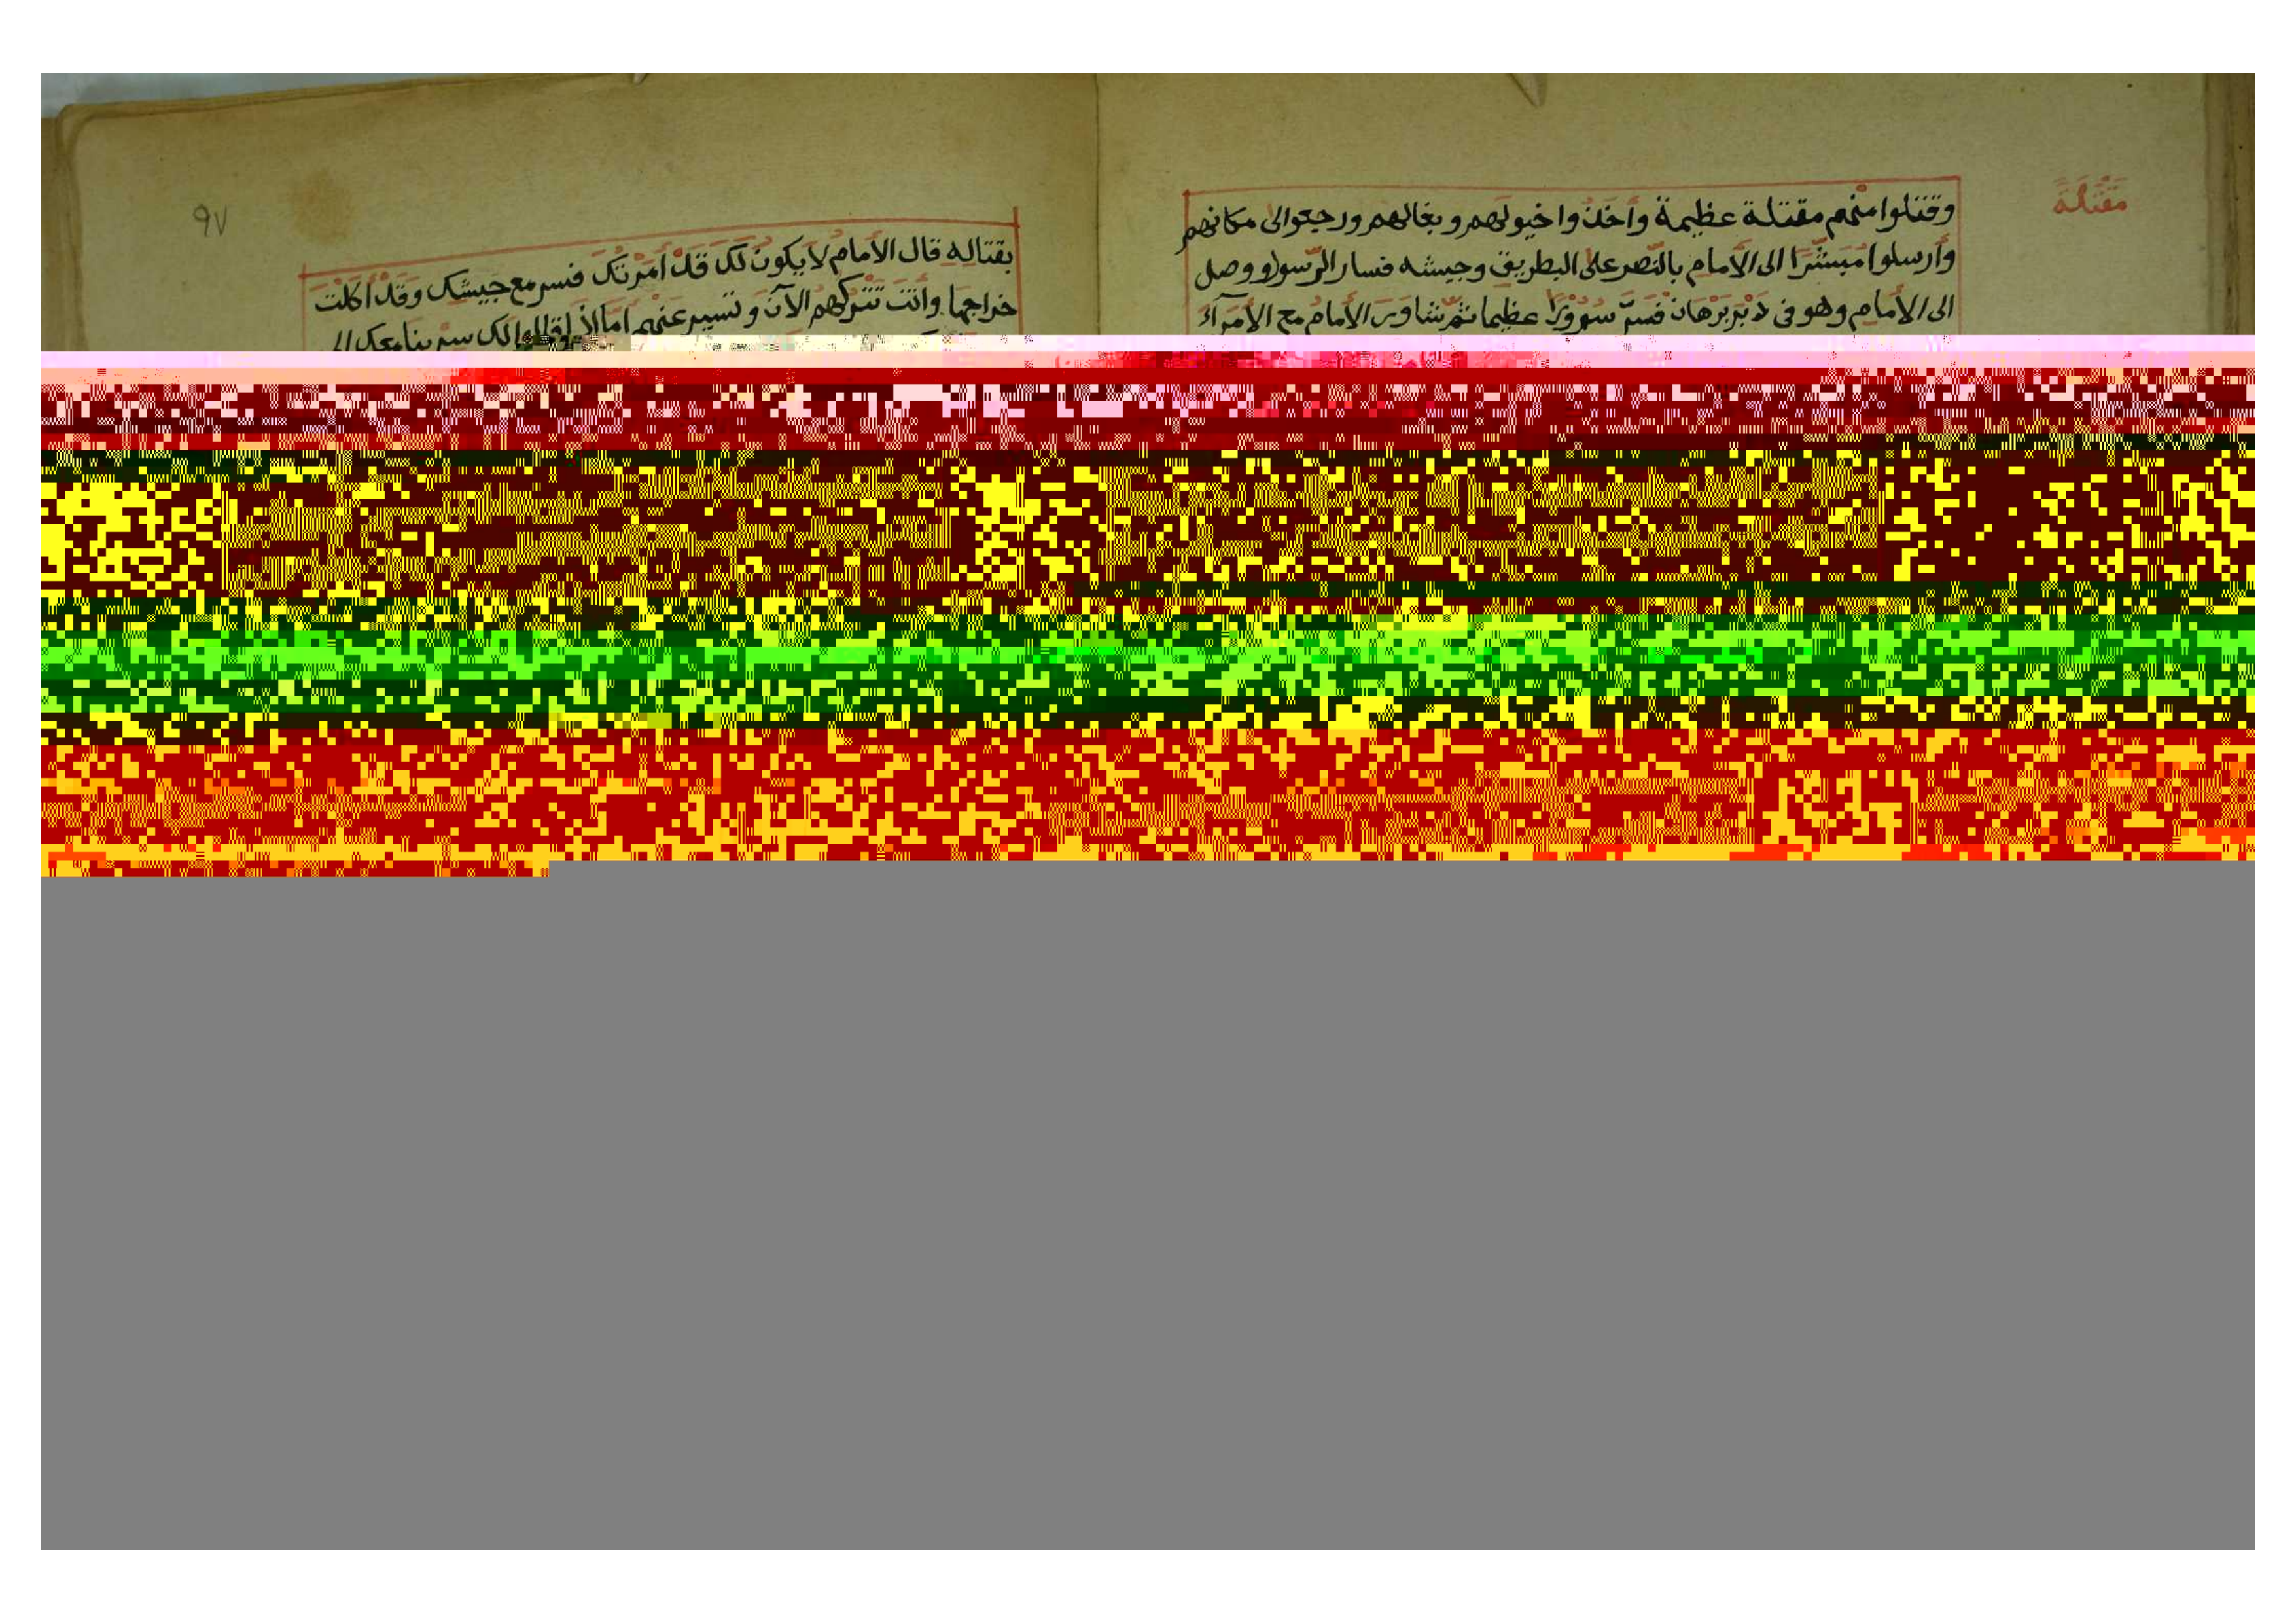 مَقْتَلَةً
وقتلوا منهم مقتلة عظيمة وأخذوا خيولهم وبغالهم ورجعوا الى مكانهم
وأرسلوا مُبَشِّرًا الى الأمام بالنّصر على البطريق وجيشه فسار الرّسول ووصل
الى الأمام وهو فى دَبْرَ بَرْهَان فَسُرَّ سُرُوْرًا عظيما ثمّ تشاوَرَ الأمامُ مع الأمرآء
٩٧
بقتاله قال الأمامُ لا يكونُ لكَ قَدْ أمَرْتُكَ فسر مع جَيشك وقَدْ أكلتَ
خراجها وأنتَ تَتْركُهم الآنَ وتسير عنهم اما اذا قالوا لك سِرْ بنا معك الى